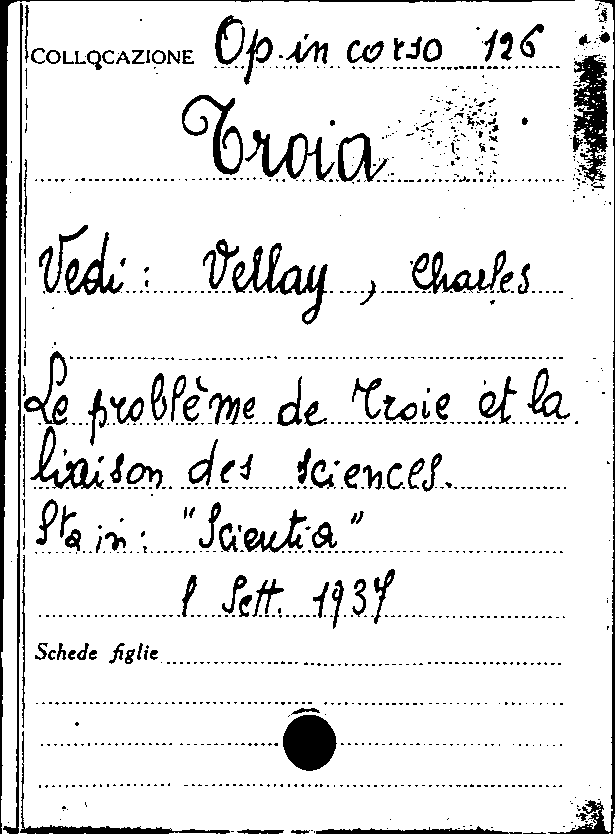 COLLOCAZIONE Op. in corso 126
Troia
Vedi: Vellay, Charles
Le problème de Troie et la
liaison des sciences.
Sta in: "Scientia"
1 Sett. 1937
Schede figlie